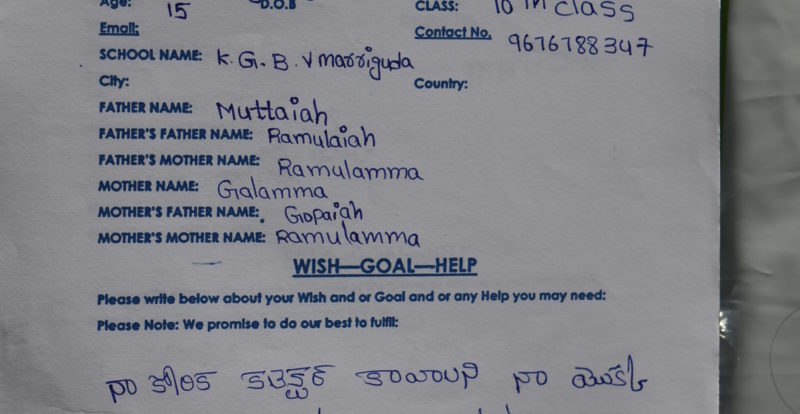 Age: 15 D.O.B CLASS: 10 th class
Email: Contact No. 9676788347
SCHOOL NAME: K.G.B.V marriguda
City: Country:
FATHER NAME: Muttaiah
FATHER'S FATHER NAME: Ramulaiah
FATHER'S MOTHER NAME: Ramulamma
MOTHER NAME: Galamma
MOTHER'S FATHER NAME: Gopaiah
MOTHER'S MOTHER NAME: Ramulamma
WISH—GOAL—HELP
Please write below about your Wish and or Goal and or any Help you may need:
Please Note: We promise to do our best to fulfil:
నా కోరిక కలెక్టర్ కావాలని నా యొక్క